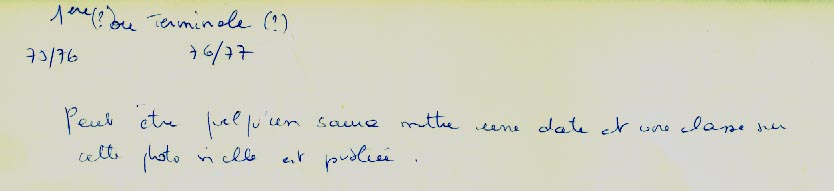 1ere(?) ou Terminale (?)
75/76 76/77
Peut être quelqu'un saura mettre une date et une classe sur
cette photo si elle est publiée.